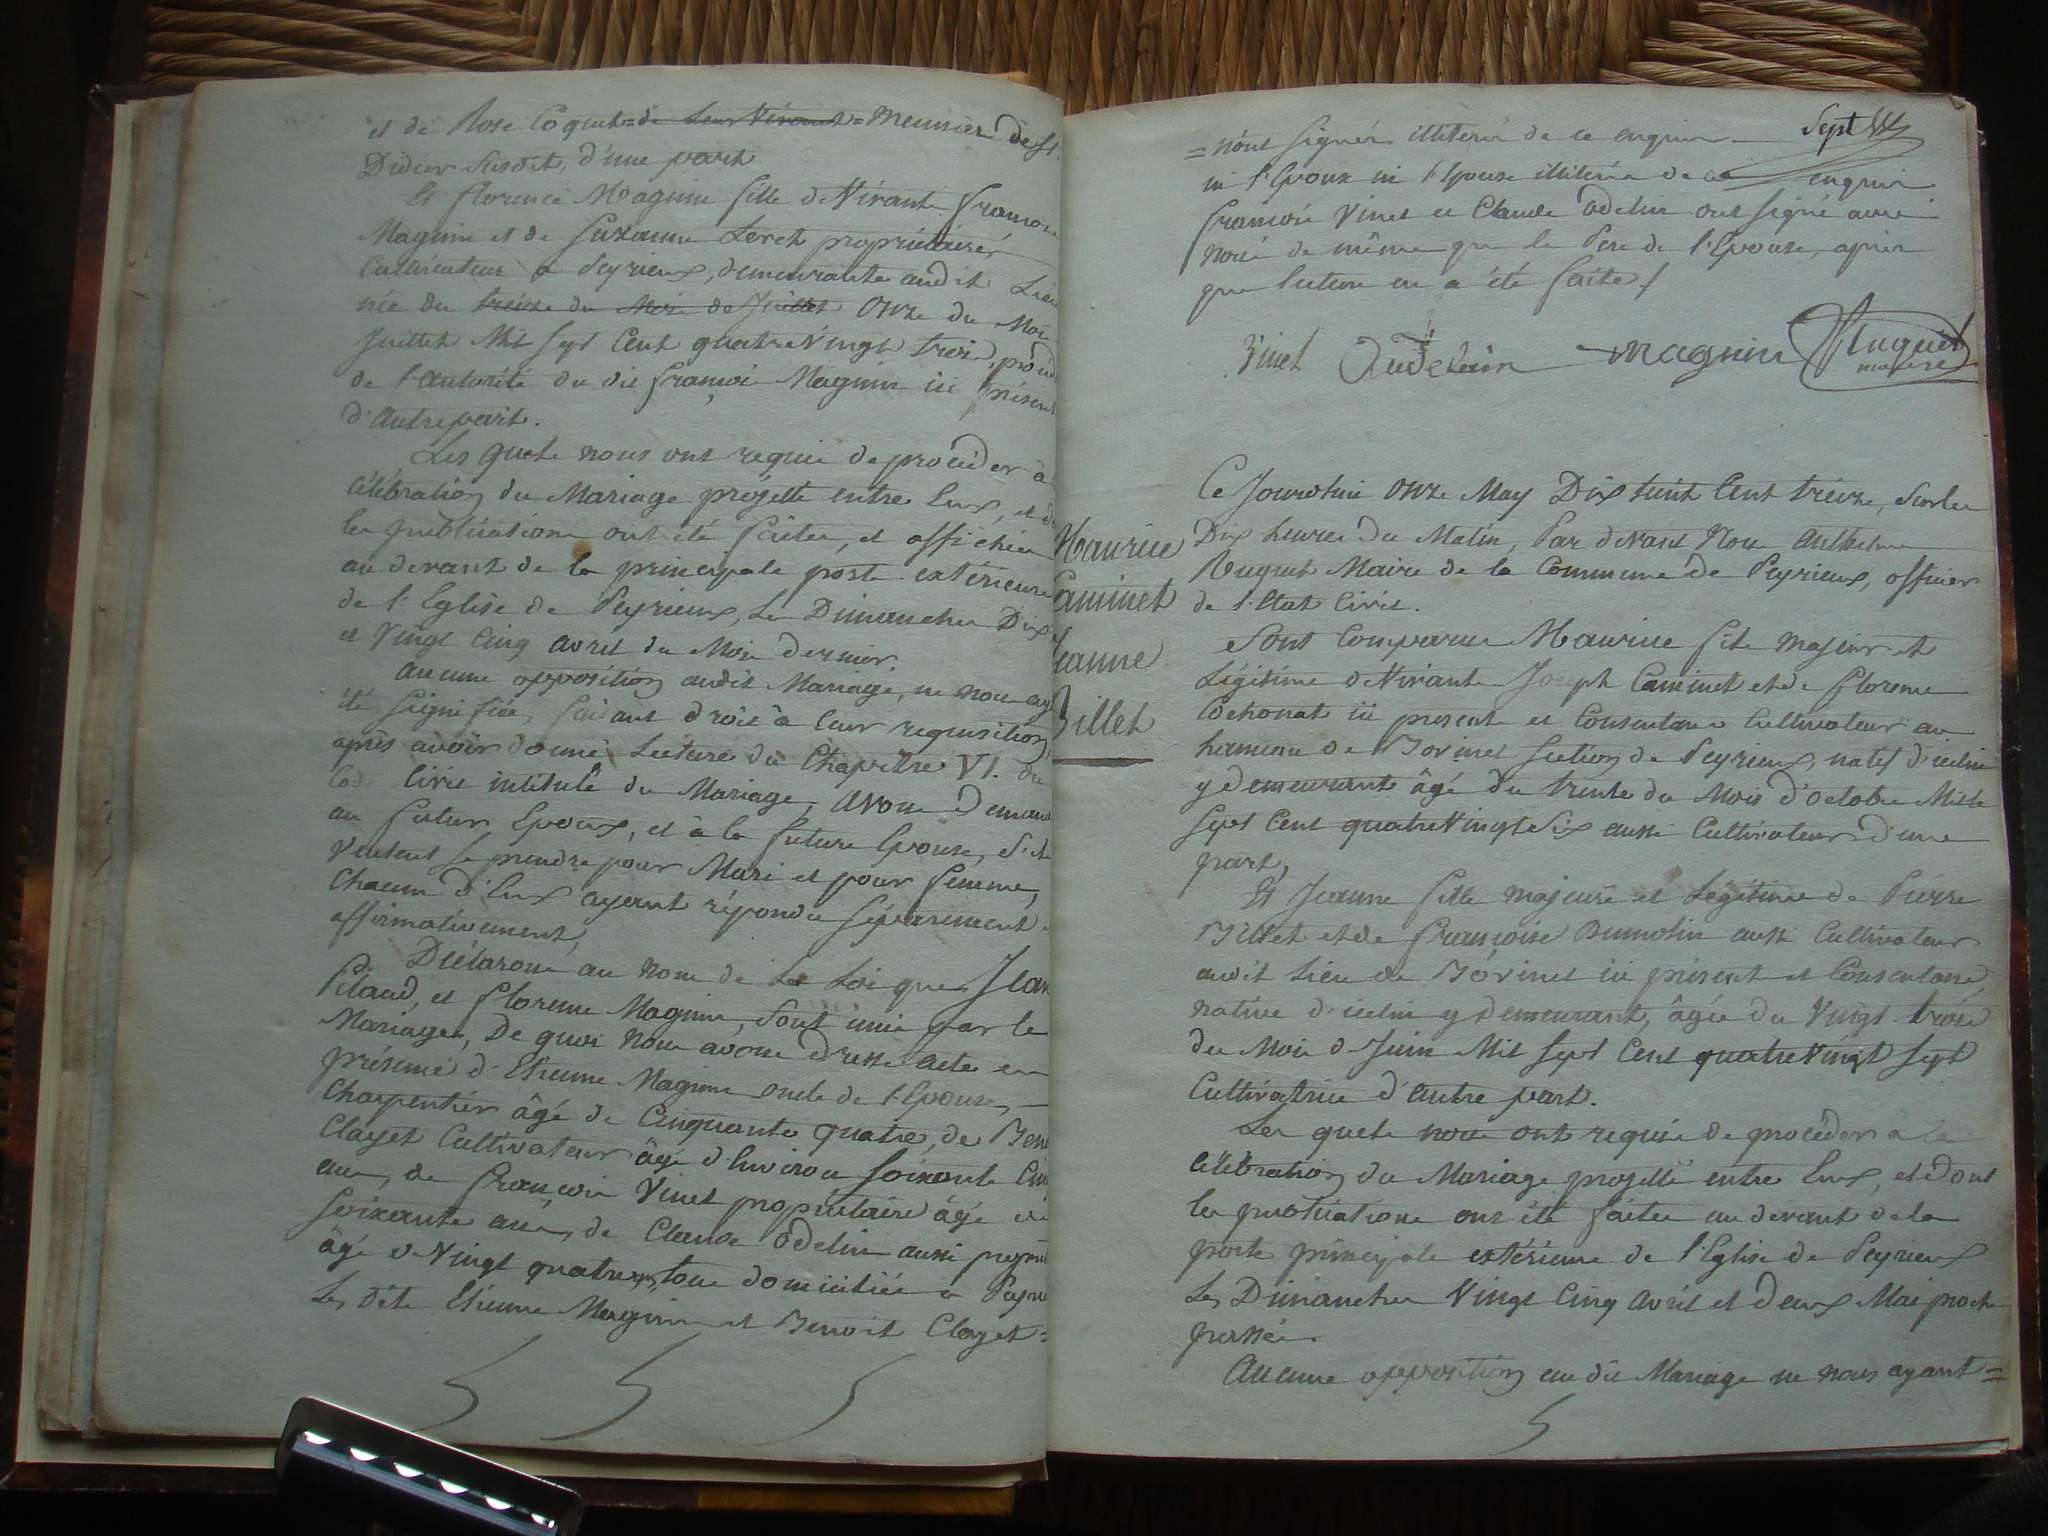 et de Rose Coquet = de leur vivant = Meunier de St
Didier susdit, d'une part
Et florence Magnin fille de Vivants françois
Magnin et de Suzanne Levet propriétaires
Cultivateurs a Peyrieux, demeurante audit Lieu
née du treize du Mois de Juillet Onze du Mois
Juillet Mil sept Cent quatre Vingt trois,
de l'autorité du dit françois Magnin ici présent
d'Autre part.
Les quels nous ont requis de procéder à
célébration du Mariage projetté entre Eux, et
les publications ont été faites, et affichées
au devant de la principale porte extérieure
de l'Eglise de Peyrieux, les Dimanches Dix
et Vingt Cinq avril du Mois dernier.
Aucune opposition audit Mariage, ne nous
été signifiée, faisant droit à leur requisition
après avoir donné Lecture du Chapitre VI. du
Code Civil intitulé du Mariage, avons demandé
au futur Epoux, et à la future Epouse, s'ils
Veulent se prendre pour Mari et pour femme,
Chacun d'Eux ayant répondu séparement
affirmativement,
Déclarons au nom de la Loi que Jean
Pitaud, et florence Magnin, sont unis par le
Mariage, De quoi nous avons dressé acte en
présence d'Etienne Magnin oncle de l'Epouse,
Charpentier âgé de Cinquante quatre, de Ben
Clayet Cultivateur âgé d'Environ soixante Cinq
ans, de françois Vinet propriétaire âgé de
soixante ans, de Claude Odelin aussi
âgé de Vingt quatre, tous domiciliés a
Les dits Etienne Magnin et Benoit Clayet =
Sept
= n'ont signés illiterés de ce enquis
ni l'Epoux ni l'Epouse illiterés de ce enquis
françois Vinet et Claude Odelin ont signé avec
nous de même que le Pere de l'Epouse, après
que lecture en a été faite /
Vinet Audelain Magnin Huguet
maire
Maurice
Caminet
Jeanne
Billet
Ce Jourdhui Onze May Dix huit Cent treize, sur les
Dix heures du Matin, Par devant Nous Anthelme
Huguet Maire de la Commune de Peyrieux, officier
de l'Etat Civil.
Sont Comparus Maurice fils majeur et
Légitime de Vivants Joseph Caminet et de florence
Cochonat ici presents et Consentans Cultivateurs au
hameau de Bovinel section de Peyrieux, natif d'icelui
y demeurant âgé du trente du Mois d'octobre Mille
sept Cent quatre Vingt Six aussi Cultivateur d'une
part,
Et Jeanne fille majeure et Légitime de Pierre
Billet et de françoise Dumolin aussi Cultivateurs
audit Lieu de Bovinel ici présents et Consentans,
native d'icelui y demeurant, âgée du Vingt trois
du Mois de Juin Mil sept Cent quatre Vingt sept
Cultivatrice d'autre part.
Les quels nous ont requis de procéder à la
célébration du Mariage projetté entre Eux, et dont
les publications ont été faites au devant de la
porte principale extérieure de l'Eglise de Peyrieux
Les Dimanches Vingt Cinq Avril et deux Mai proche
passés.
Aucune opposition au dit Mariage ne nous ayant =